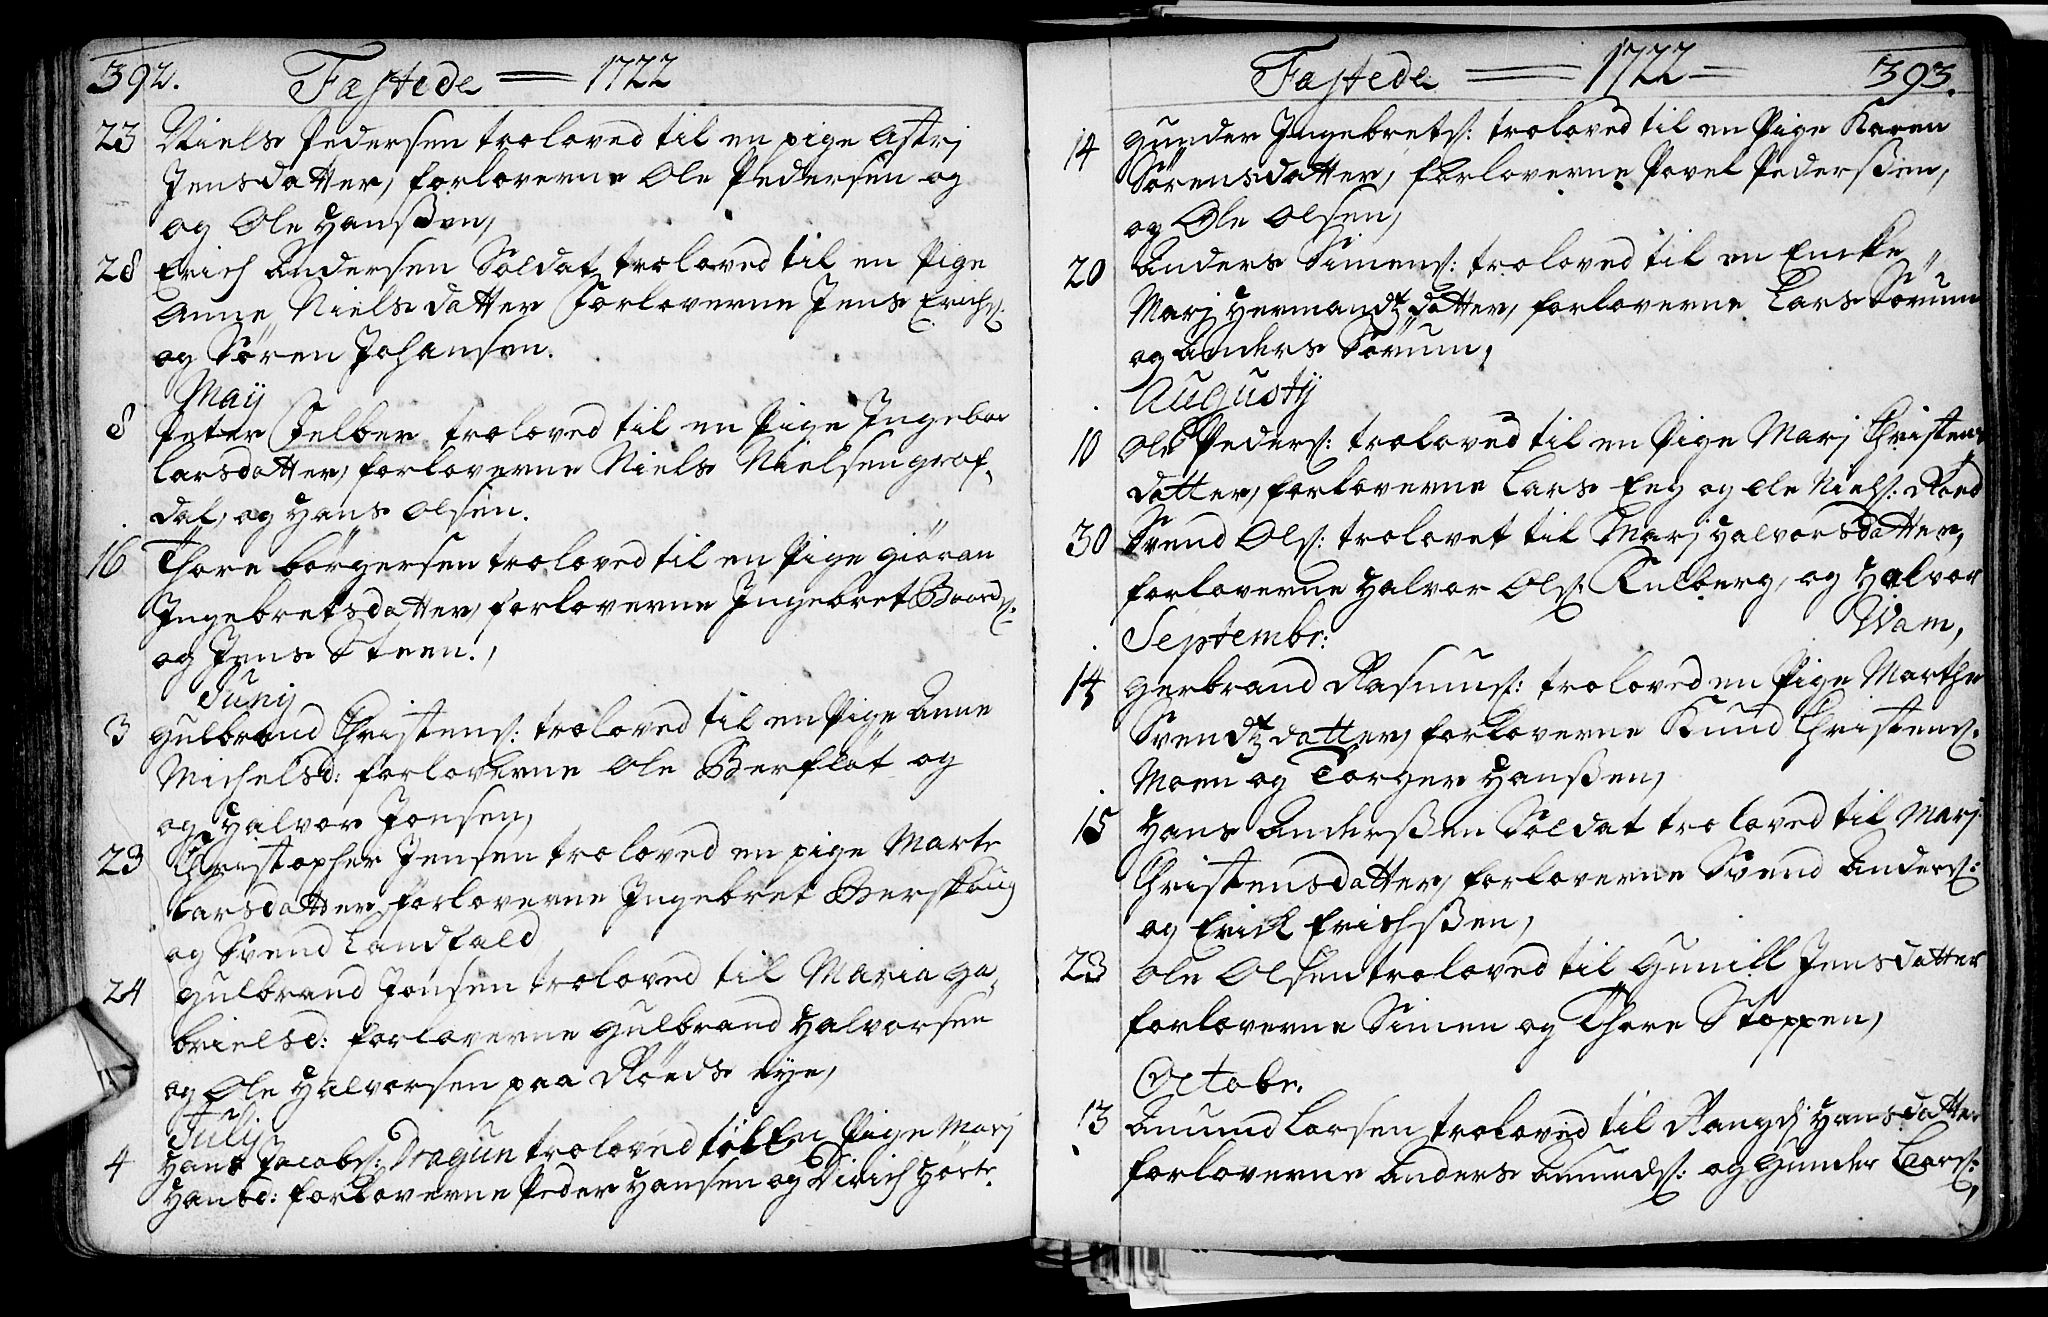 392. Fæstede = 1722
23 Niels Pedersen troloved til en pige Astrj
Jensdatter, forloverne Ole Pedersen og
og Ole Hanssen,
28 Erich Andersen Soldat troloved til en Pige
Anne Nielsdatter Forloverne Jens Erichs:
og Søren Johansen.
Maij
8 Peter Felber troloved til en Pige Ingebor
Larsdatter, forloverne Niels Nielsen grof-
dal, og Hans Olsen.
16 Thore börgersen troloved til en Pige giöran
Ingebretsdatter, forloverne Ingebret Baards:
og Jens Steen.,
Junij
3 Gulbrand Christens: troloved til en Pige Anne
Michelsd: forloverne Ole Berflöt og
og Halvor Jonsen,
23 Christopher Jensen troloved en pige Marte
Larsdatter forloverne Ingebret Berskoug
og Svend Landfald
24 Gulbrand Jonsen troloved til Maria Ga-
brielsd: forloverne Gulbrand Halvorsen
og Ole Halvorsen paa Röeds eye,
Julij
4 Hans Jacobs: Dragun troloved til En Pige Marj
Hansd: forloverne Peder Hansen og Dirich Hörte.
Fæstede = 1722 = 393.
14 Gunder Ingebrets: troloved til en Pige Karen
Sörensdatter, forloverne Povel Pederssen,
og Ole Olsen,
20 Anders Simens: troloved til en Encke
Marj Hermandtz datter, forloverne Lars Sörum
og Anders Sörum,
Augustij
10 Ole Peders: troloved til en Pige Marj Christens
datter, forloverne Lars Eeg og Ole Niels: Röed
30 Svend Ols: trolovet til Marj Halvorsdatter,
forloverne Halvor Ols: Kulberg, og Halvor
Wam,
Septembr:
14 Gerbrand Rasmus: troloved en Pige Marthe
Svendtz datter, forloverne Knud Christens:
Moen og Torger Hanssen,
15 Hans Anderssen Soldat troloved til Marj
Christensdatter, forloverne Svend Anders:
og Erick Erichssen,
23 Ole Olsen troloved til Gunill Jensdatter
forloverne Simen og Thore Stoppen,
Octobr.
13 Amund Larsen troloved til Rangdj Hansdatter
forloverne Anders Amunds: og Gunder Lars:,